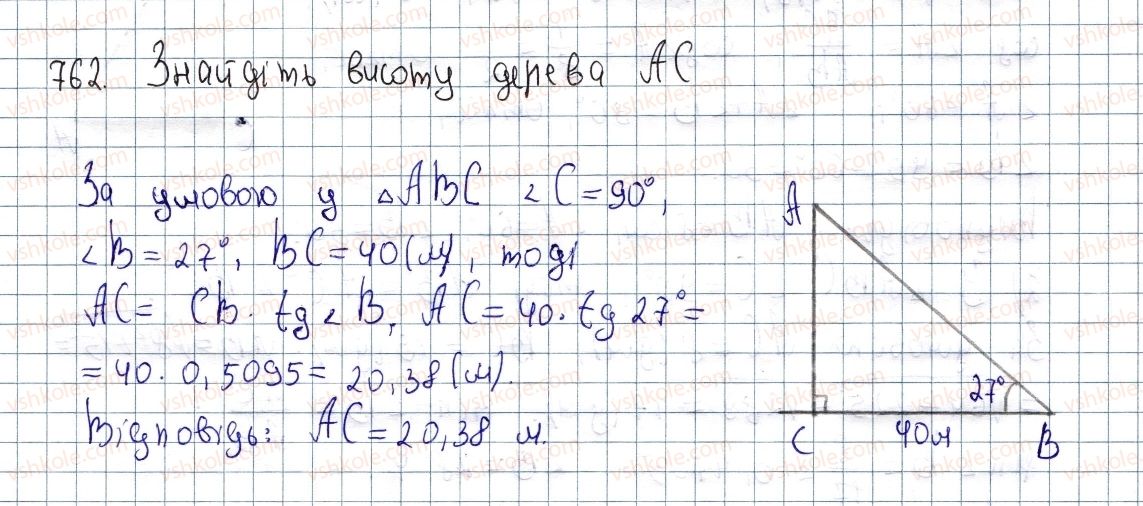 762. Знайдіть висоту дерева АС
За умовою у △ABC <C=90°,
<B=27°, BC=40(м), тоді
AC= CB· tg<B, AC=40·tg27°=
=40·0,5095=20,38(м).
Відповідь: AC=20,38 м.
A
27°
C 40м B
vshkole.com